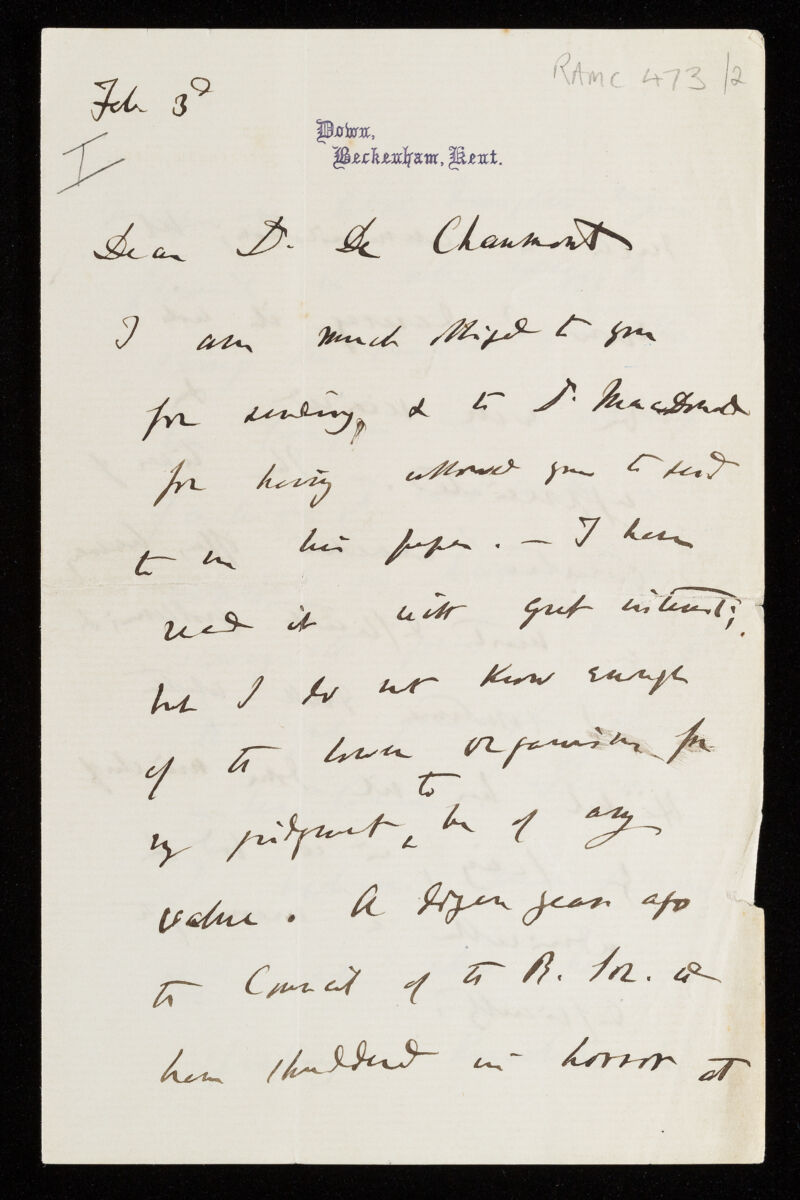 RAMC 473/2
Feb 3d
I
Down,
Beckenham, Kent.
Dear Dr. De Chaumont
I am much obliged to you
for sending, & to Dr. MacDonald
for having allowed you to send
to me his paper. — I have
read it with great interest;
but I do not know enough
of the lower organisms for
my judgment to be of any
value. A dozen years ago
the Council of the R. Soc. wd
have shuddered in horror at